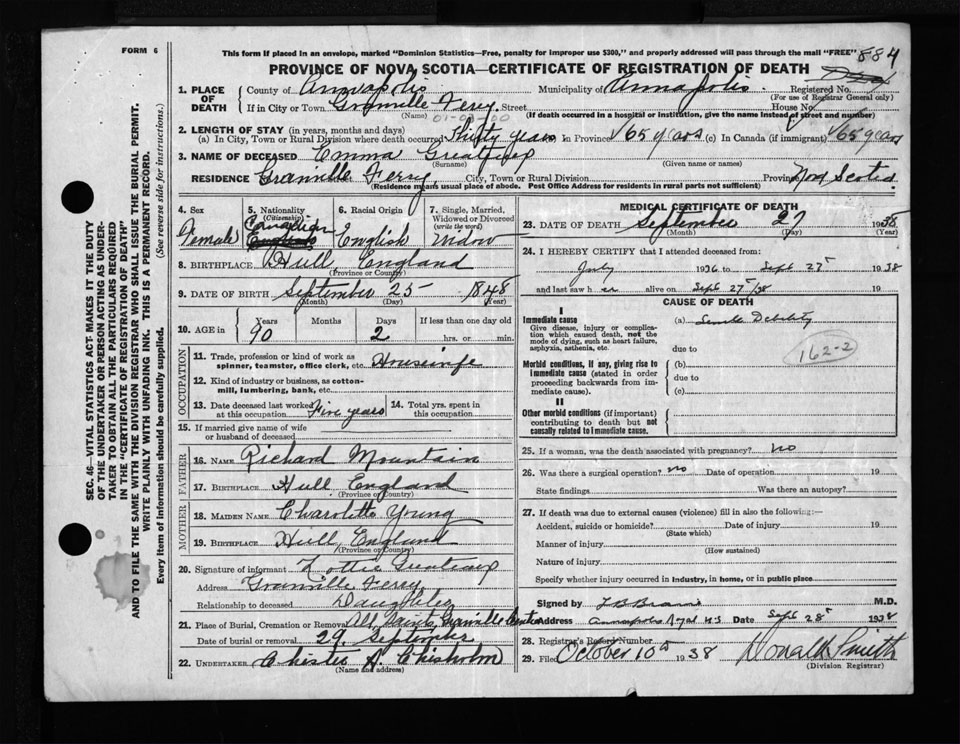 FORM 6
This form if placed in an envelope, marked "Dominion Statistics—Free, penalty for improper use $300," and properly addressed will pass through the mail "FREE"
884
PROVINCE OF NOVA SCOTIA—CERTIFICATE OF REGISTRATION OF DEATH
1. PLACE OF DEATH County of Annapolis Municipality of Annapolis Registered No.
(For use of Registrar General only)
If in City or Town Granville Ferry Street House No.
(Name) (If death occurred in a hospital or institution, give the name instead of street and number)
2. LENGTH OF STAY (in years, months and days)
(a) In City, Town or Rural Division where death occurred Thirty years In Province 65 years (c) In Canada (if immigrant) 65 years
3. NAME OF DECEASED Emma
(Surname) (Given name or names)
RESIDENCE Granville Ferry City, Town or Rural Division Province Nova Scotia
(Residence means usual place of abode. Post Office Address for residents in rural parts not sufficient)
4. Sex Female
5. Nationality (Citizenship) Canadian
6. Racial Origin English
7. Single, Married, Widowed or Divorced (write the word) Widow
8. BIRTHPLACE Hull, England
(Province or Country)
9. DATE OF BIRTH September 25 1848
(Month) (Day) (Year)
10. AGE in Years Months Days If less than one day old
90 2 hrs. or min.
OCCUPATION
11. Trade, profession or kind of work as spinner, teamster, office clerk, etc. Housewife
12. Kind of industry or business, as cotton-mill, lumbering, bank, etc.
13. Date deceased last worked at this occupation Five years
14. Total yrs. spent in this occupation
15. If married give name of wife or husband of deceased
FATHER
16. NAME Richard Mountain
17. BIRTHPLACE Hull England
(Province or Country)
MOTHER
18. MAIDEN NAME Charolette Young
19. BIRTHPLACE Hull, England
(Province or Country)
20. Signature of informant Lottie
Address Granville Ferry
Relationship to deceased Daughter
21. Place of Burial, Cremation or Removal All Saints, Granville Centre
Date of burial or removal 29 September
22. UNDERTAKER Chester A. Chisholm
(Name and address)
MEDICAL CERTIFICATE OF DEATH
23. DATE OF DEATH September 27 1938
(Month) (Day) (Year)
24. I HEREBY CERTIFY that I attended deceased from:
July 1936 to Sept 25 1938
and last saw her alive on Sept 25/38 19
CAUSE OF DEATH
I
Immediate cause (a) Senile Debility
Give disease, injury or complication which caused death, not the mode of dying, such as heart failure, asphyxia, asthenia, etc.
due to
162-2
Morbid conditions, if any, giving rise to immediate cause (stated in order proceeding backwards from immediate cause).
(b)
due to
(c)
II
Other morbid conditions (if important) contributing to death but not causally related to immediate cause.
25. If a woman, was the death associated with pregnancy? No
26. Was there a surgical operation? No Date of operation 19
State findings Was there an autopsy?
27. If death was due to external causes (violence) fill in also the following:—
Accident, suicide or homicide? Date of injury 19
(State which)
Manner of injury
(How sustained)
Nature of injury
Specify whether injury occurred in industry, in home, or in public place
Signed by M.D.
Address Annapolis Royal NS Date Sept 28 1938
28. Registrar's Record Number
29. Filed October 10th 1938 Donald Smith
(Division Registrar)
SEC. 46—VITAL STATISTICS ACT- MAKES IT THE DUTY
OF THE UNDERTAKER OR PERSON ACTING AS UNDER-
TAKER TO OBTAIN ALL THE PARTICULARS REQUIRED
IN THE "CERTIFICATE OF REGISTRATION OF DEATH"
AND TO FILE THE SAME WITH THE DIVISION REGISTRAR WHO SHALL ISSUE THE BURIAL PERMIT.
WRITE PLAINLY WITH UNFADING INK. THIS IS A PERMANENT RECORD.
Every item of information should be carefully supplied. (See reverse side for instructions.)